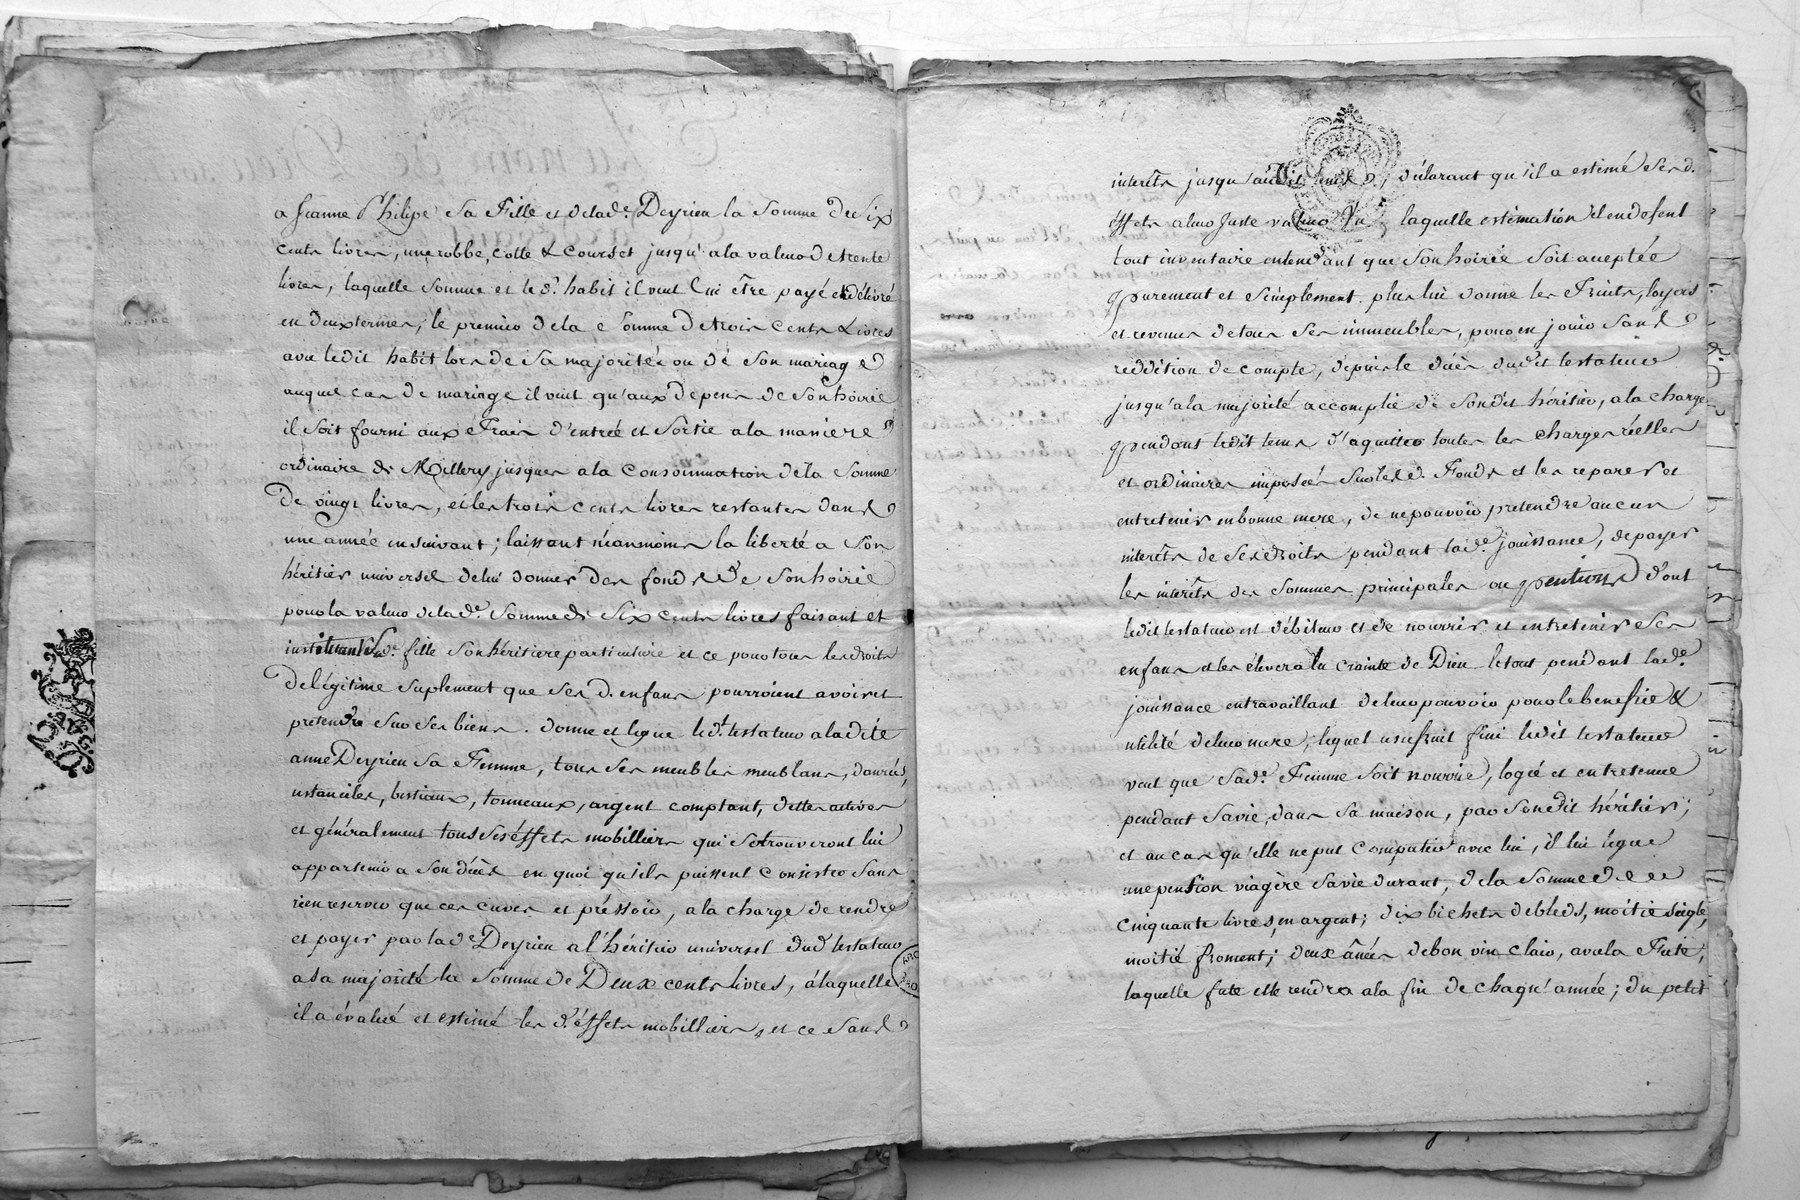 a Jeanne Philipe sa Fille et de lad.e Deyrieu la somme de six
cents livres, une robbe, cotte & courset jusqu'a la valeur de trente
livres, laquelle somme et led.t habit il veut lui être payé et délivré
en deux termes, le premier de la somme de trois cents Livres
avec ledit habit lors de sa majorité ou dé son mariage
auquel cas de mariage il veut qu'aux depens de son hoirie
il soit fourni aux fraix d'entrée et sortie a la maniere
ordinaire de Millery jusques a la consommation de la somme
De vingt livres, et les trois cents livres restantes dans
une année en suivant; laissant néanmoins la liberté a son
héritier universel de lui donner des fonds de son hoirie
pour la valeur de lad.e somme de six cents livres faisant et
instituant sad.e fille son héritiere particuliere et ce pour tous les droits
De légitime suplement que ses d. enfans pourroient avoir et
pretendre sur ses biens. donne et legue led.t testateur a la dite
anne Deyrieu sa Femme, tous ses meubles meublans, danrés,
ustanciles, bestiaux, tonneaux, argent comptant, dettes actives
et généralement tous ses éffets mobilliers qui se trouveront lui
appartenir a son décès en quoi qu'ils puissent consister sans
rien reserver que ces cuves et préssoir, a la charge de rendre
et payer par lad.e Deyrieu a l'héritier universel dud. testateur
a sa majorité la somme de Deux cents livres, à laquelle
il a évalué et estimé les d. éffets mobilliers, et ce sans
interêts jusqu'audit tems, déclarant qu'il a estimé sesd.
éffets a leur juste valeur de laquelle estimation il en défent
tout inventaire entendant que son hoirie soit acceptée
purement et simplement. plus lui donne les Fruits, loyers
et revenus de tous ses immeubles, pour en jouir sans
reddition de compte, depuis le décès dudit testateur
jusqu'a la majorité accomplie de son dit héritier, a la charge
pendant ledit tems d'aquitter toutes les charges réelles
et ordinaires imposées sur lesd. Fonds et les reparer et
entretenir en bonne mere, de ne pouvoir pretendre aucun
interêts de ses droits pendant lad.e jouissance, de payer
les interêts des sommes principales ou pentions dont
ledit testateur est débiteur et de nourrir et entretenir ses
enfans et les élever a la crainte de Dieu le tout pendant lad.e
jouissance en travaillant de leur pouvoir pour le benefice &
utilité de leur mere, lequel usufruit fini ledit testateur
veut que sad.e Femme soit nourrie, logée et entretenue
pendant sa vie, dans sa maison, par son dit héritier;
et au cas qu'elle ne put compatir avec lui, il lui légue
une pension viagère sa vie durant, de la somme de
cinquante livres en argent; dix bichets de bleds, moitié seigle,
moitié froment; deux ânées de bon vin clair, avec la Fute,
laquelle fute elle rendra a la fin de chaqu'année; du petit